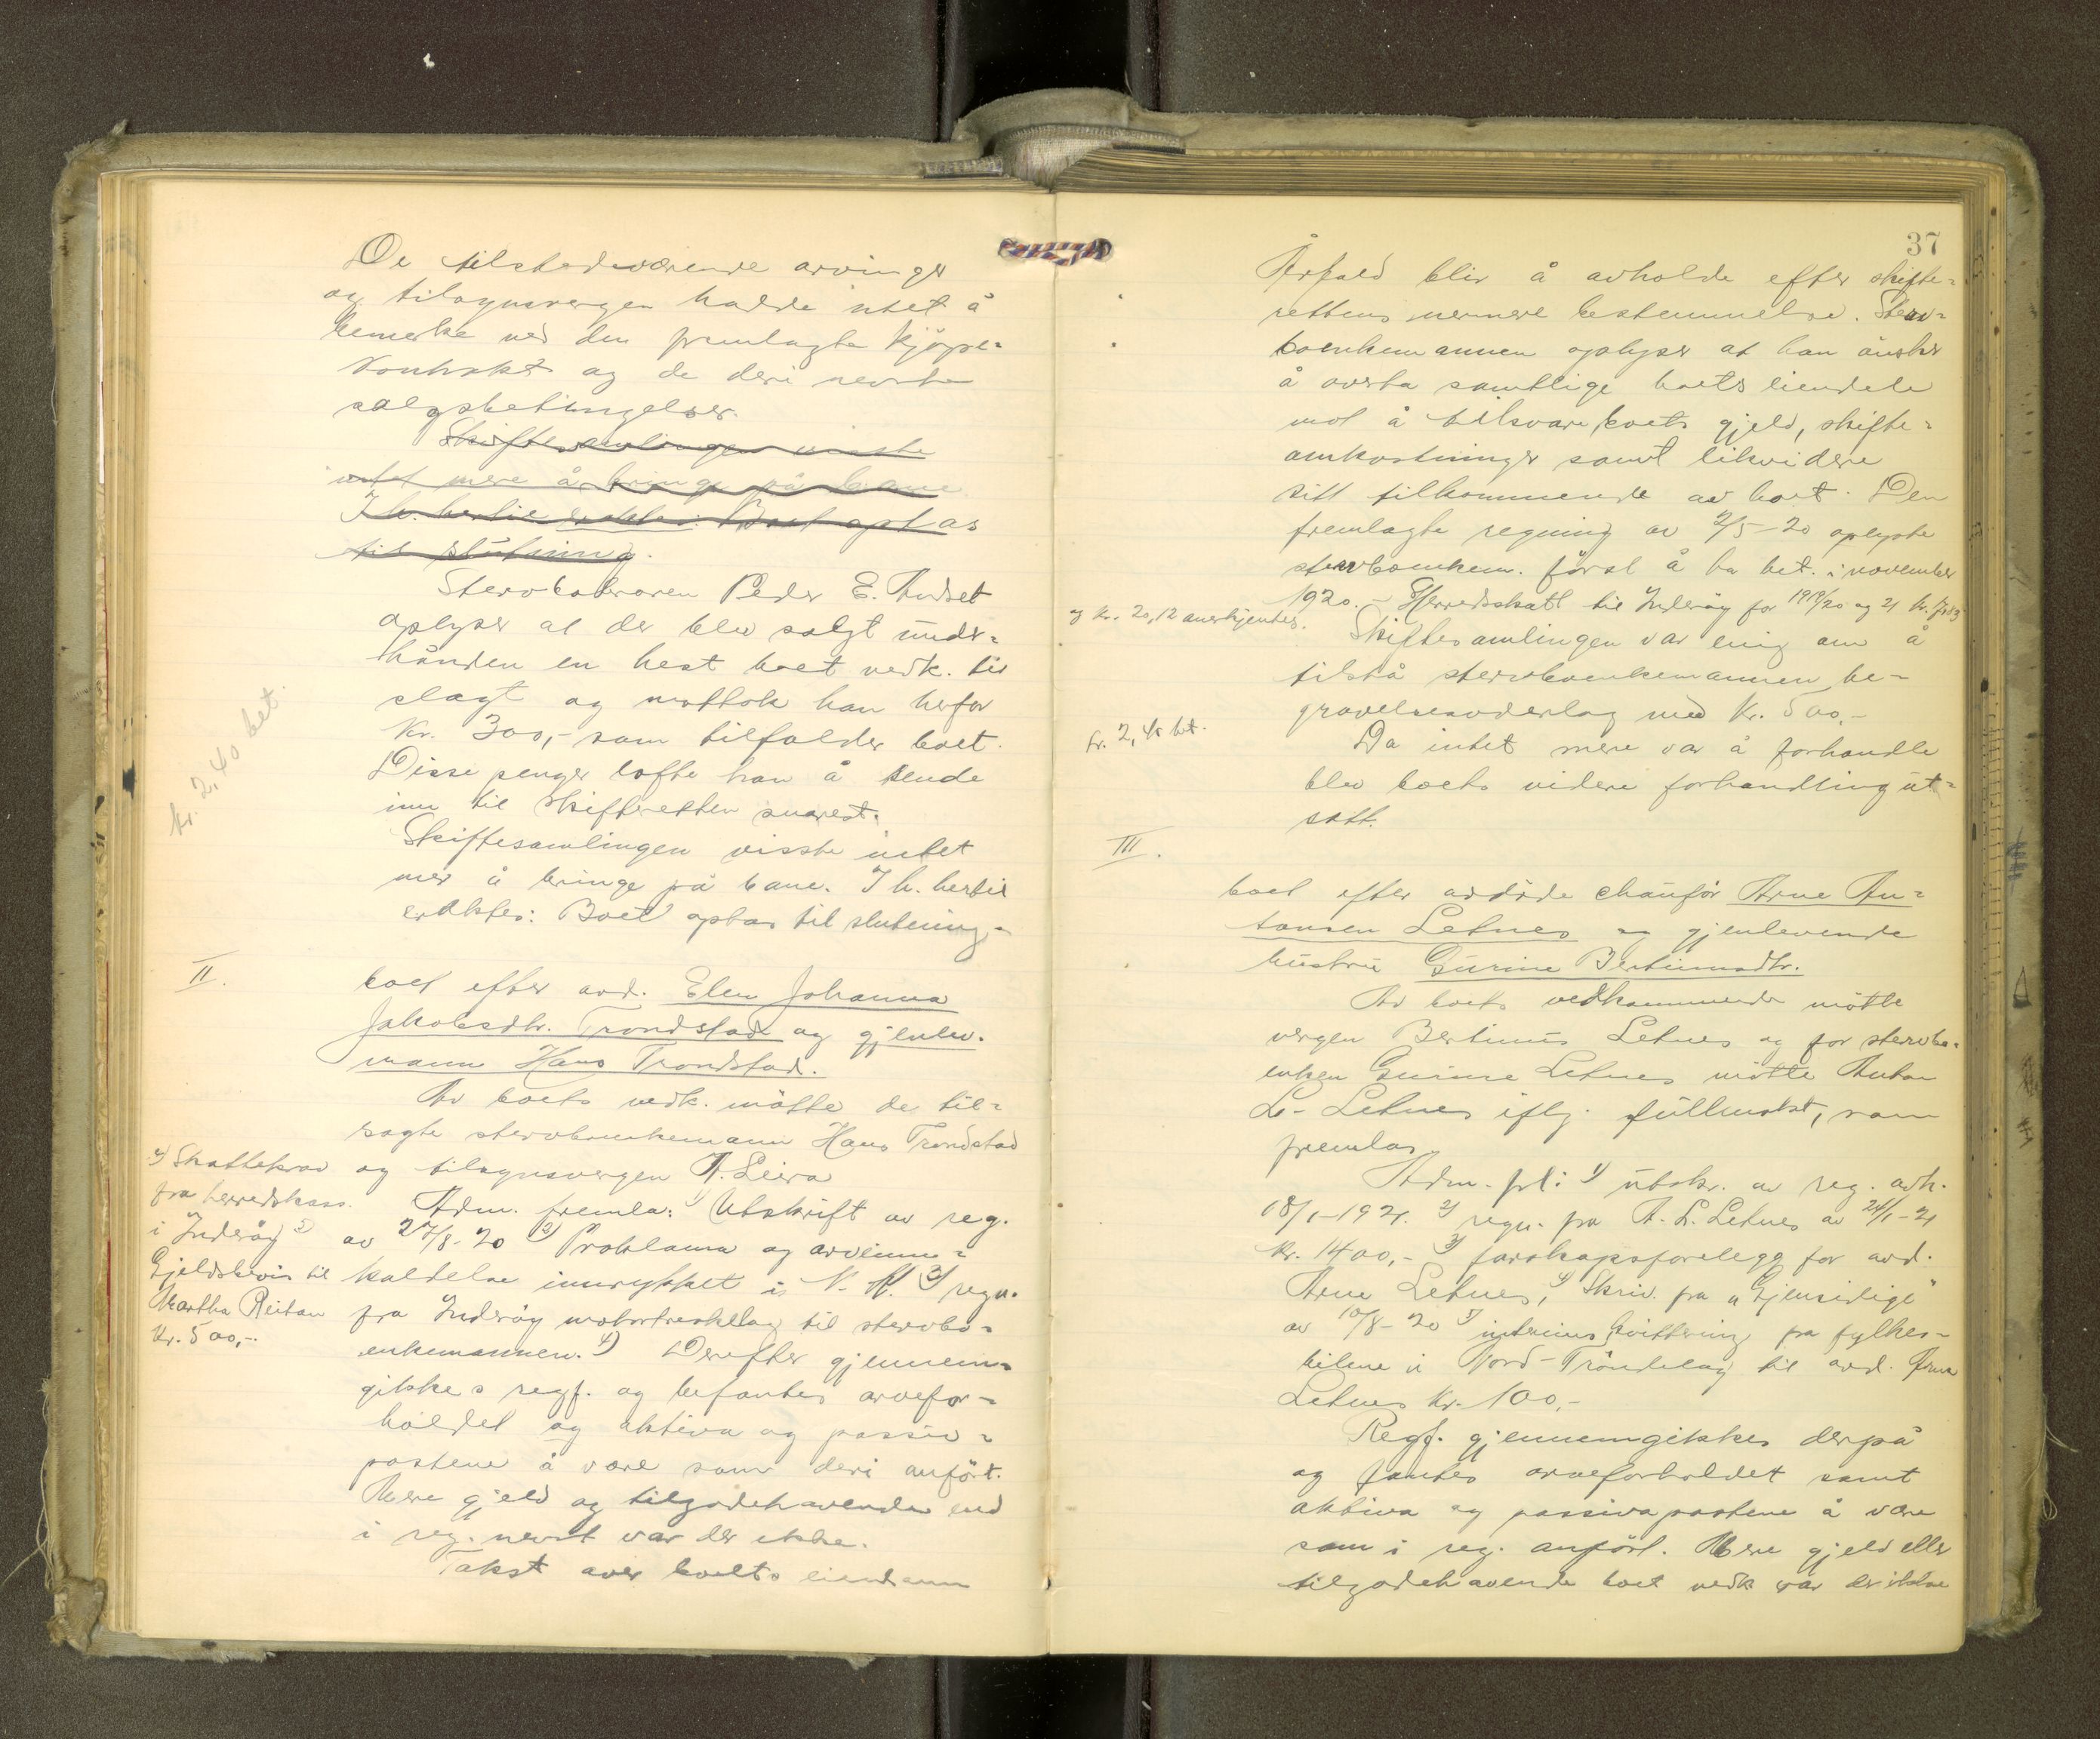 De tilstedeværende arvinger
og tilsynsvergen hadde intet å
bemerke ved den fremlagte kjøpe=
kontrakt og de deri nevnte
salgsbetingelser.
Skiftesamlingen visste
intet mere å bringe på bane
I h. hertil eraktes: Boet optas
til slutning.
Stervboervaren Peder E. Audset
oplyser at der blev solgt under=
hånden en hest boet vedk. til
slagt og mottok han herfor
kr. 300,- som tilfalder boet.
Disse penger lofte han å sende
inn til skifteretten snarest.
Skiftesamlingen visste intet
mer å bringe på bane. I h. hertil
eraktes: Boet optas til slutning.-
kr. 2,40 bet.
II.
boet efter avd. Elen Johanna
Jakobsdtr. Trondstad og gjenlev.
mann Hans Trondstad.
Av boets vedk. møtte de til=
sagte stervboenkemann Hans Trondstad
og tilsynsvergen A. Leira
Adm. fremla: 1) Utskrift av reg.
av 27/8-20 2) Proklama og arveinn=
kaldelse innrykket i N. A. 3) regn.
fra Inderøy motortreskelag til stervbo=
enkemannen. 4) Derefter gjennem=
gikkes regf. og befantes arvefor=
holdet og aktiva og passiv=
postene å være som deri anført.
Mere gjeld og tilgodehavende end
i reg. nevnt var der ikke.
Takst over boets eiendom
4) Skattekrav
fra herredskass.
i Inderøy 5)
Gjeldsbevis til
Martha Reitan
kr. 500,-.
37
Årfald blir å avholde efter skifte=
rettens nermere bestemmelse. Sterv=
boenkemannen oplyser at han ønsker
å overta samtlige boets eiendele
mot å tilsvare boets gjeld, skifte=
omkostninger samt likvidere
sitt tilkommende av boet. Den
fremlagte regning av 2/5-20 oplyste
stervboenkem. først å ha bet. i november
1920. - Herredsskatt til Inderøy for 1919/20 og 21 kr.
og kr. 20,12 anerkjentes.
Skiftesamlingen var enig om å
tilstå stervboenkemannen be-
gravelsesvederlag med kr. 500,-
kr. 2,40 bet.
Da intet mere var å forhandle
blev boets videre forhandling ut=
satt.
III.
boet efter avdøde chauför Arne An=
tonsen Letnes og gjenlevende
hustru Gurine Bertinusdtr.
Av boets vedkommende møtte
vergen Bertinus Letnes og for stervbo=
enken Gurine Letnes møtte Anton
L. Letnes iflg. fullmakt, som
fremlas
Adm. frl: 1) utskr. av reg. avh.
18/1-1921. 2) regn. fra A. L. Letnes av 24/1-21
kr. 1400,- 3) farskapsforelegg for avd.
Arne Letnes, 4) Skriv. fra "Gjensidige"
av 10/8-20 5) interims kvittering fra fylkes=
bilene i Nord-Trøndelag til avd. Arne
Letnes kr. 100,-
Regf. gjennemgikkes derpå
og fantes arveforholdet samt
aktiva og passiva postene å være
som i reg. anført. Mere gjeld eller
tilgodehavende boet vedk var der ikke